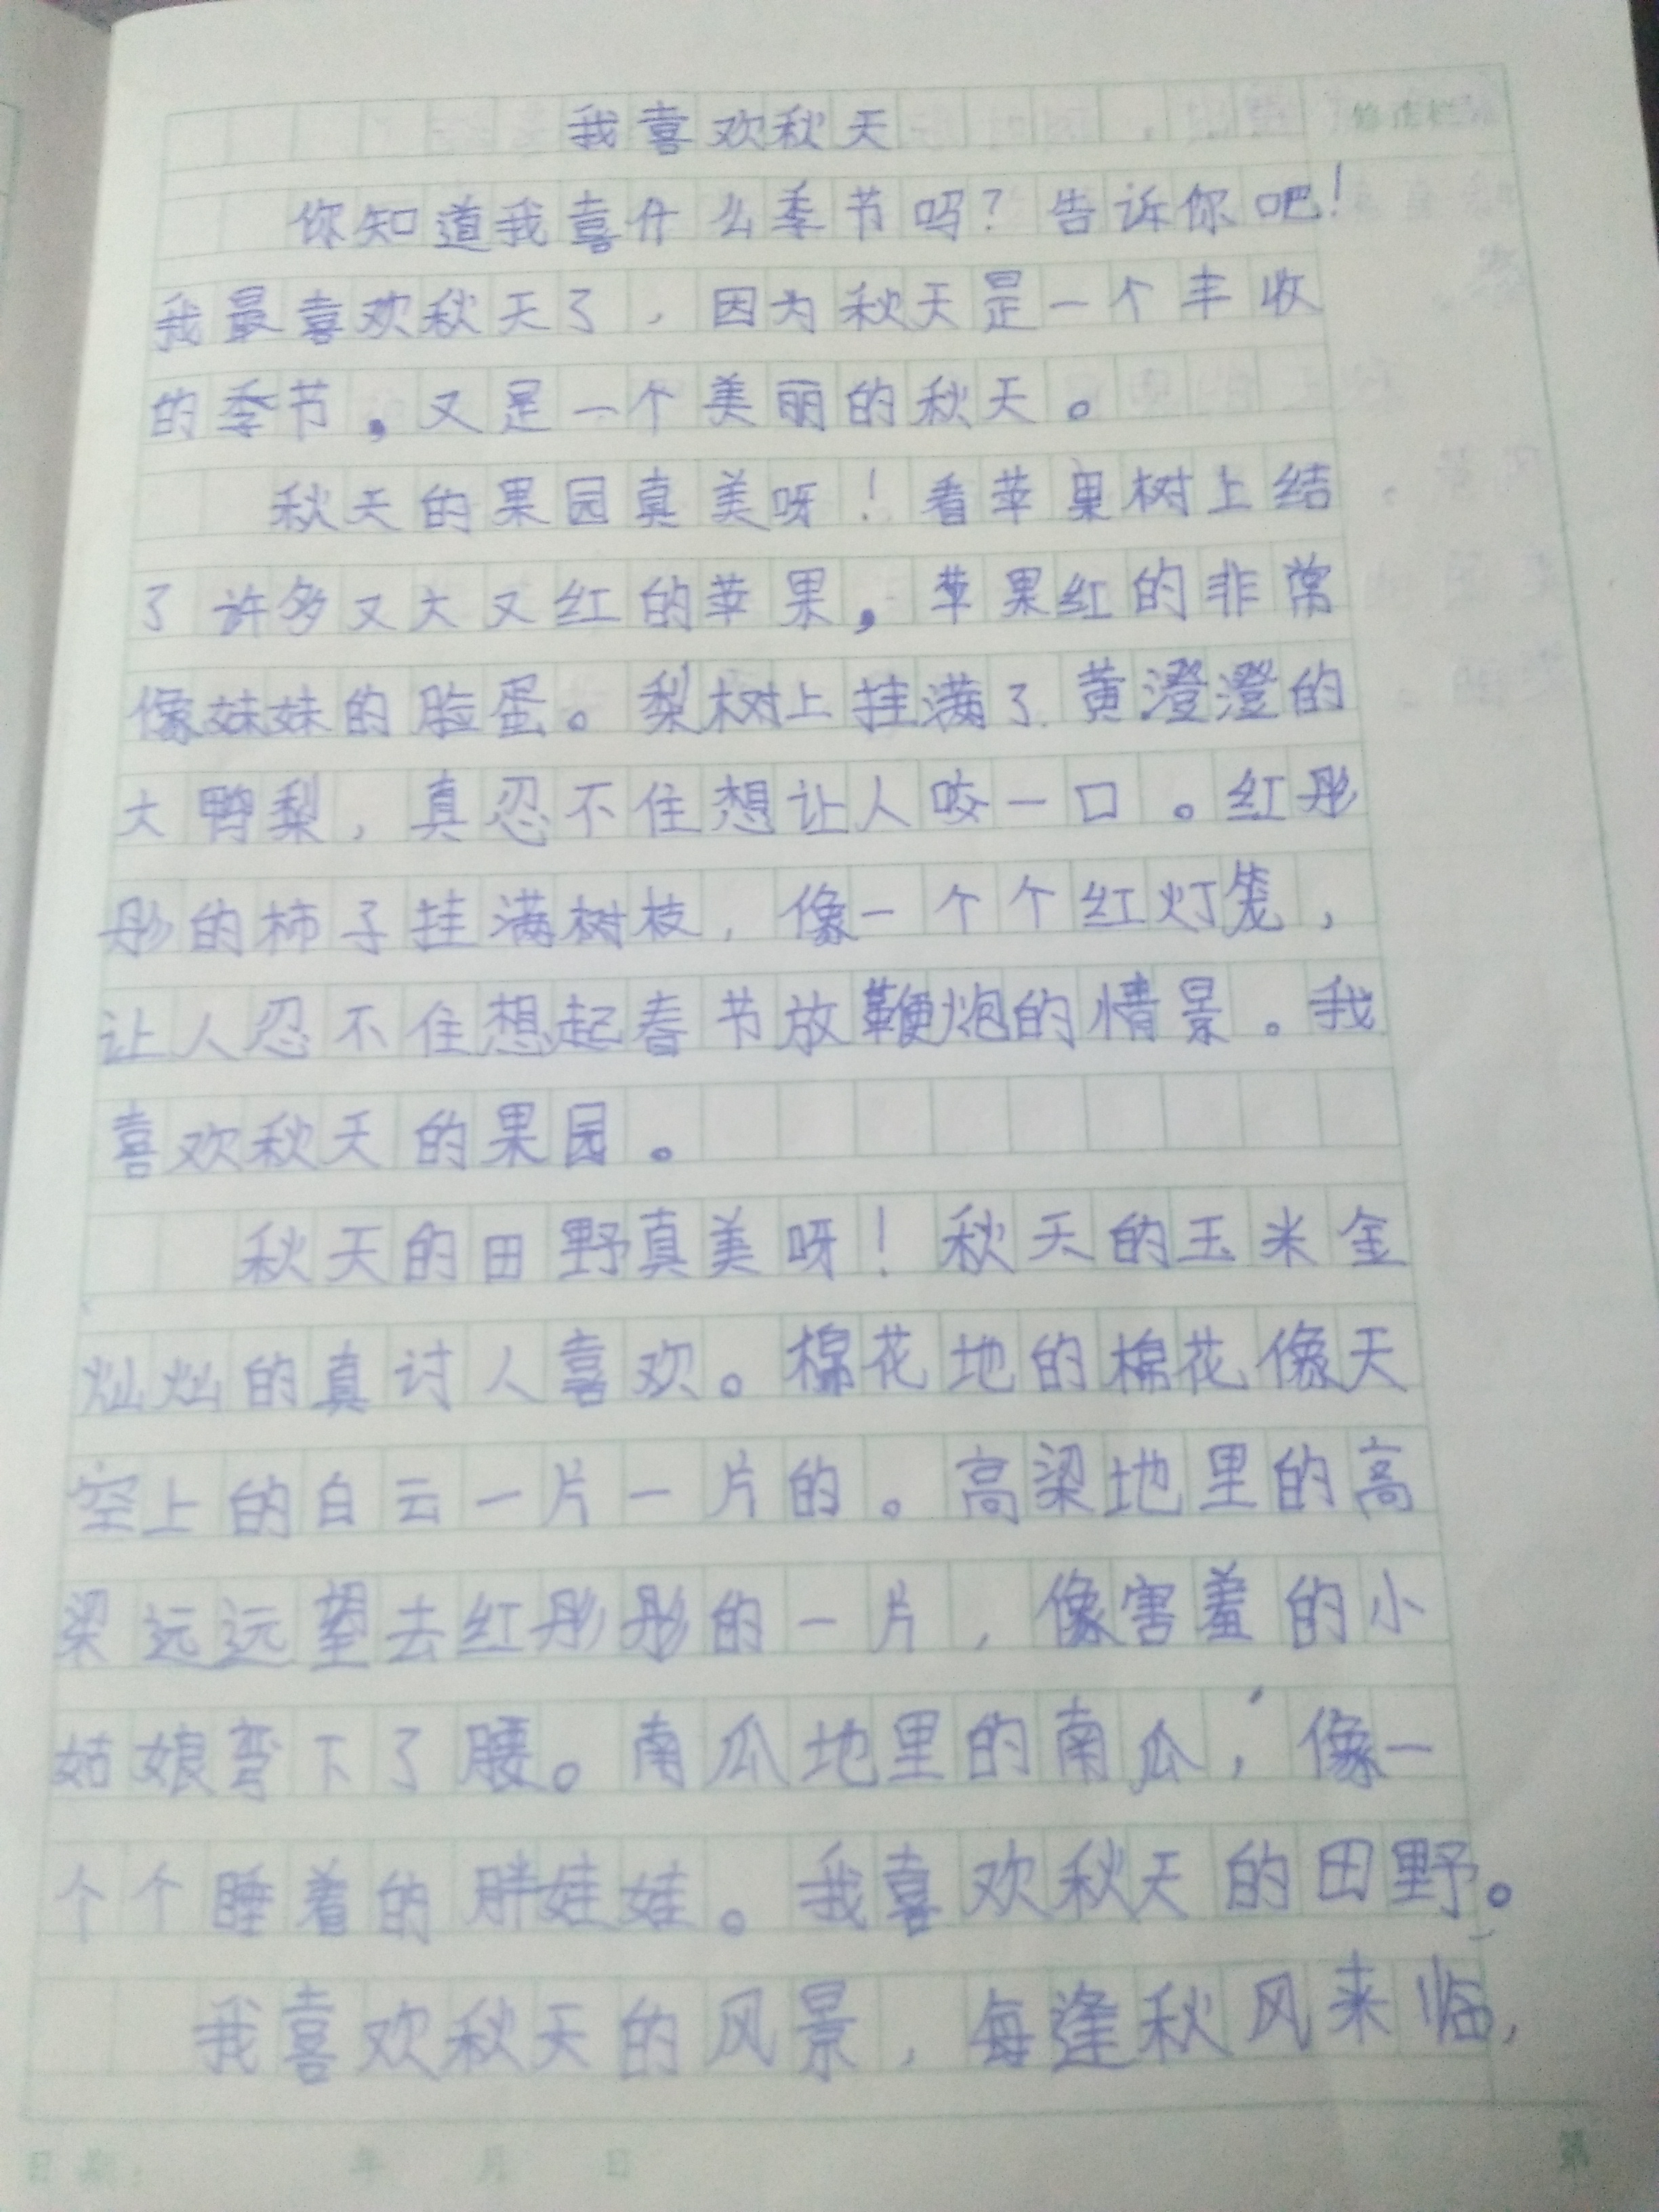 我喜欢秋天
你知道我喜什么季节吗？告诉你吧！
我最喜欢秋天了，因为秋天是一个丰收
的季节，又是一个美丽的秋天。
秋天的果园真美呀！看苹果树上结
了许多又大又红的苹果，苹果红的非常
像妹妹的脸蛋。梨树上挂满了黄澄澄的
大鸭梨，真忍不住想让人咬一口。红彤
彤的柿子挂满树枝，像一个个红灯笼，
让人忍不住想起春节放鞭炮的情景。我
喜欢秋天的果园。
秋天的田野真美呀！秋天的玉米金
灿灿的真讨人喜欢。棉花地的棉花像天
空上的白云一片一片的。高粱地里的高
粱远远望去红彤彤的一片，像害羞的小
姑娘弯下了腰。南瓜地里的南瓜，像一
个个睡着的胖娃娃。我喜欢秋天的田野。
我喜欢秋天的风景，每逢秋风来临，
日期： 年 月 日
第